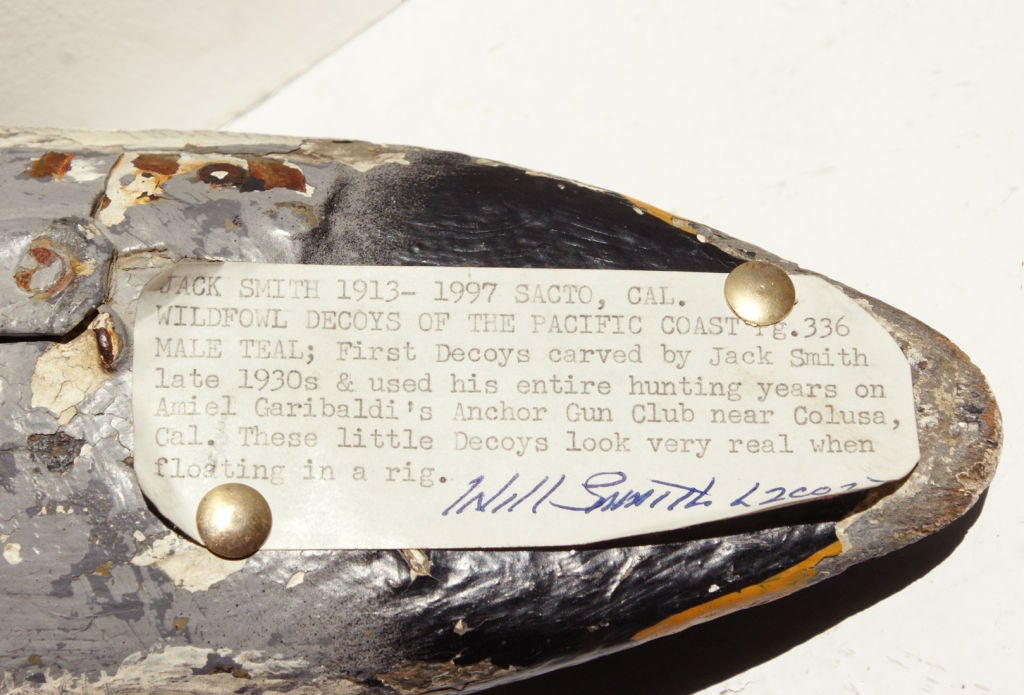 JACK SMITH 1913- 1997 SACTO, CAL.
WILDFOWL DECOYS OF THE PACIFIC COAST Pg.336
MALE TEAL; First Decoys carved by Jack Smith
late 1930s & used his entire hunting years on
Amiel Garibaldi's Anchor Gun Club near Colusa,
Cal. These little Decoys look very real when
floating in a rig.
Will Smith